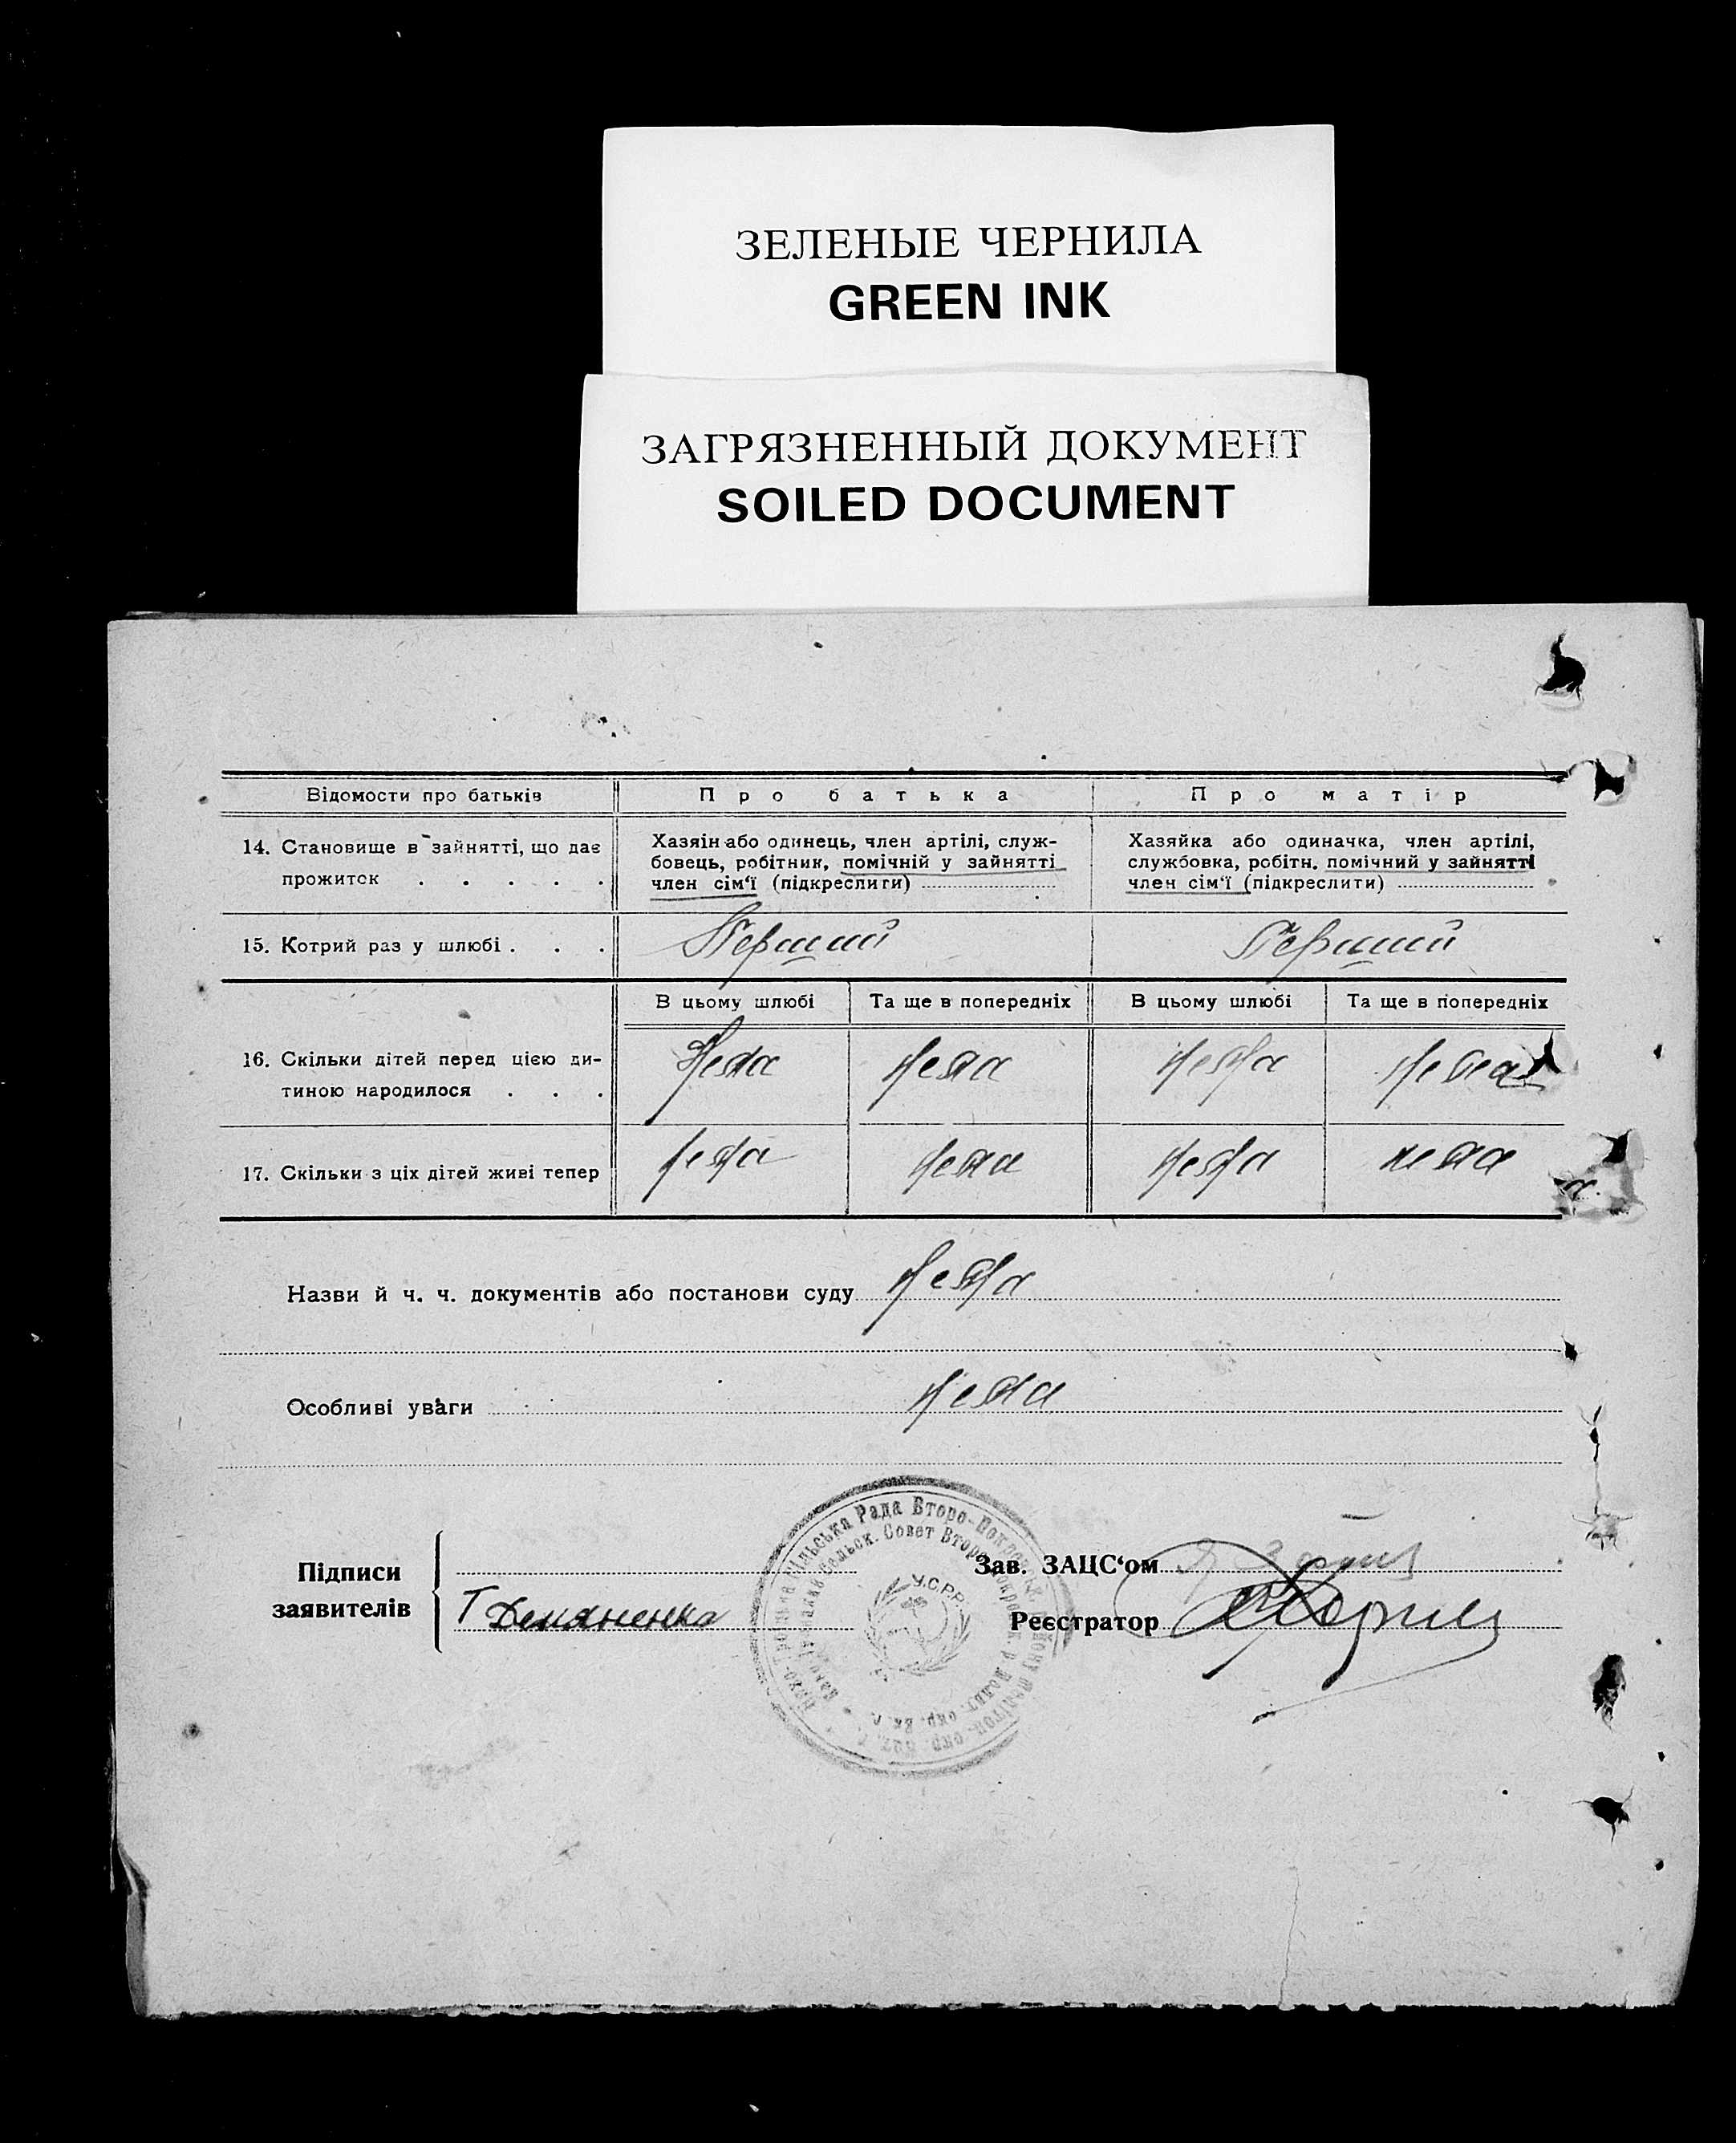 ЗЕЛЕНЫЕ ЧЕРНИЛА
GREEN INK
ЗАГРЯЗНЕННЫЙ ДОКУМЕНТ
SOILED DOCUMENT
Відомости про батьків Про батька Про матір
14. Становище в зайнятті, що дає
прожиток . . . . .
Хазяін або одинець, член артілі, служ-
бовець, робітник, помічній у зайнятті
член сім'ї (підкреслиги)
Хазяйка або одиначка, член артілі,
службовка, робітн. помічний у зайнятті
член сім'ї (підкреслити)
15. Котрий раз у шлюбі . . . Перший Перший
В цьому шлюбі Та ще в попередніх В цьому шлюбі Та ще в попередніх
16. Скільки дітей перед цією ди-
тиною народилося . . .
Нема Нема Нема Немає
17. Скільки з ціх дітей живі тепер Нема Нема Нема Нема
Назви й ч. ч. документів або постанови суду Нема
Особливі уваги Нема
Підписи
заявителів
Т Демяненко
Зав. ЗАЦС'ом
Реєстратор
Сільська Рада Второ-Покровськ. Району Мелітоп. окр.
Сельск. Совет Второ-Покровск. р.
У.С.Р.Р.